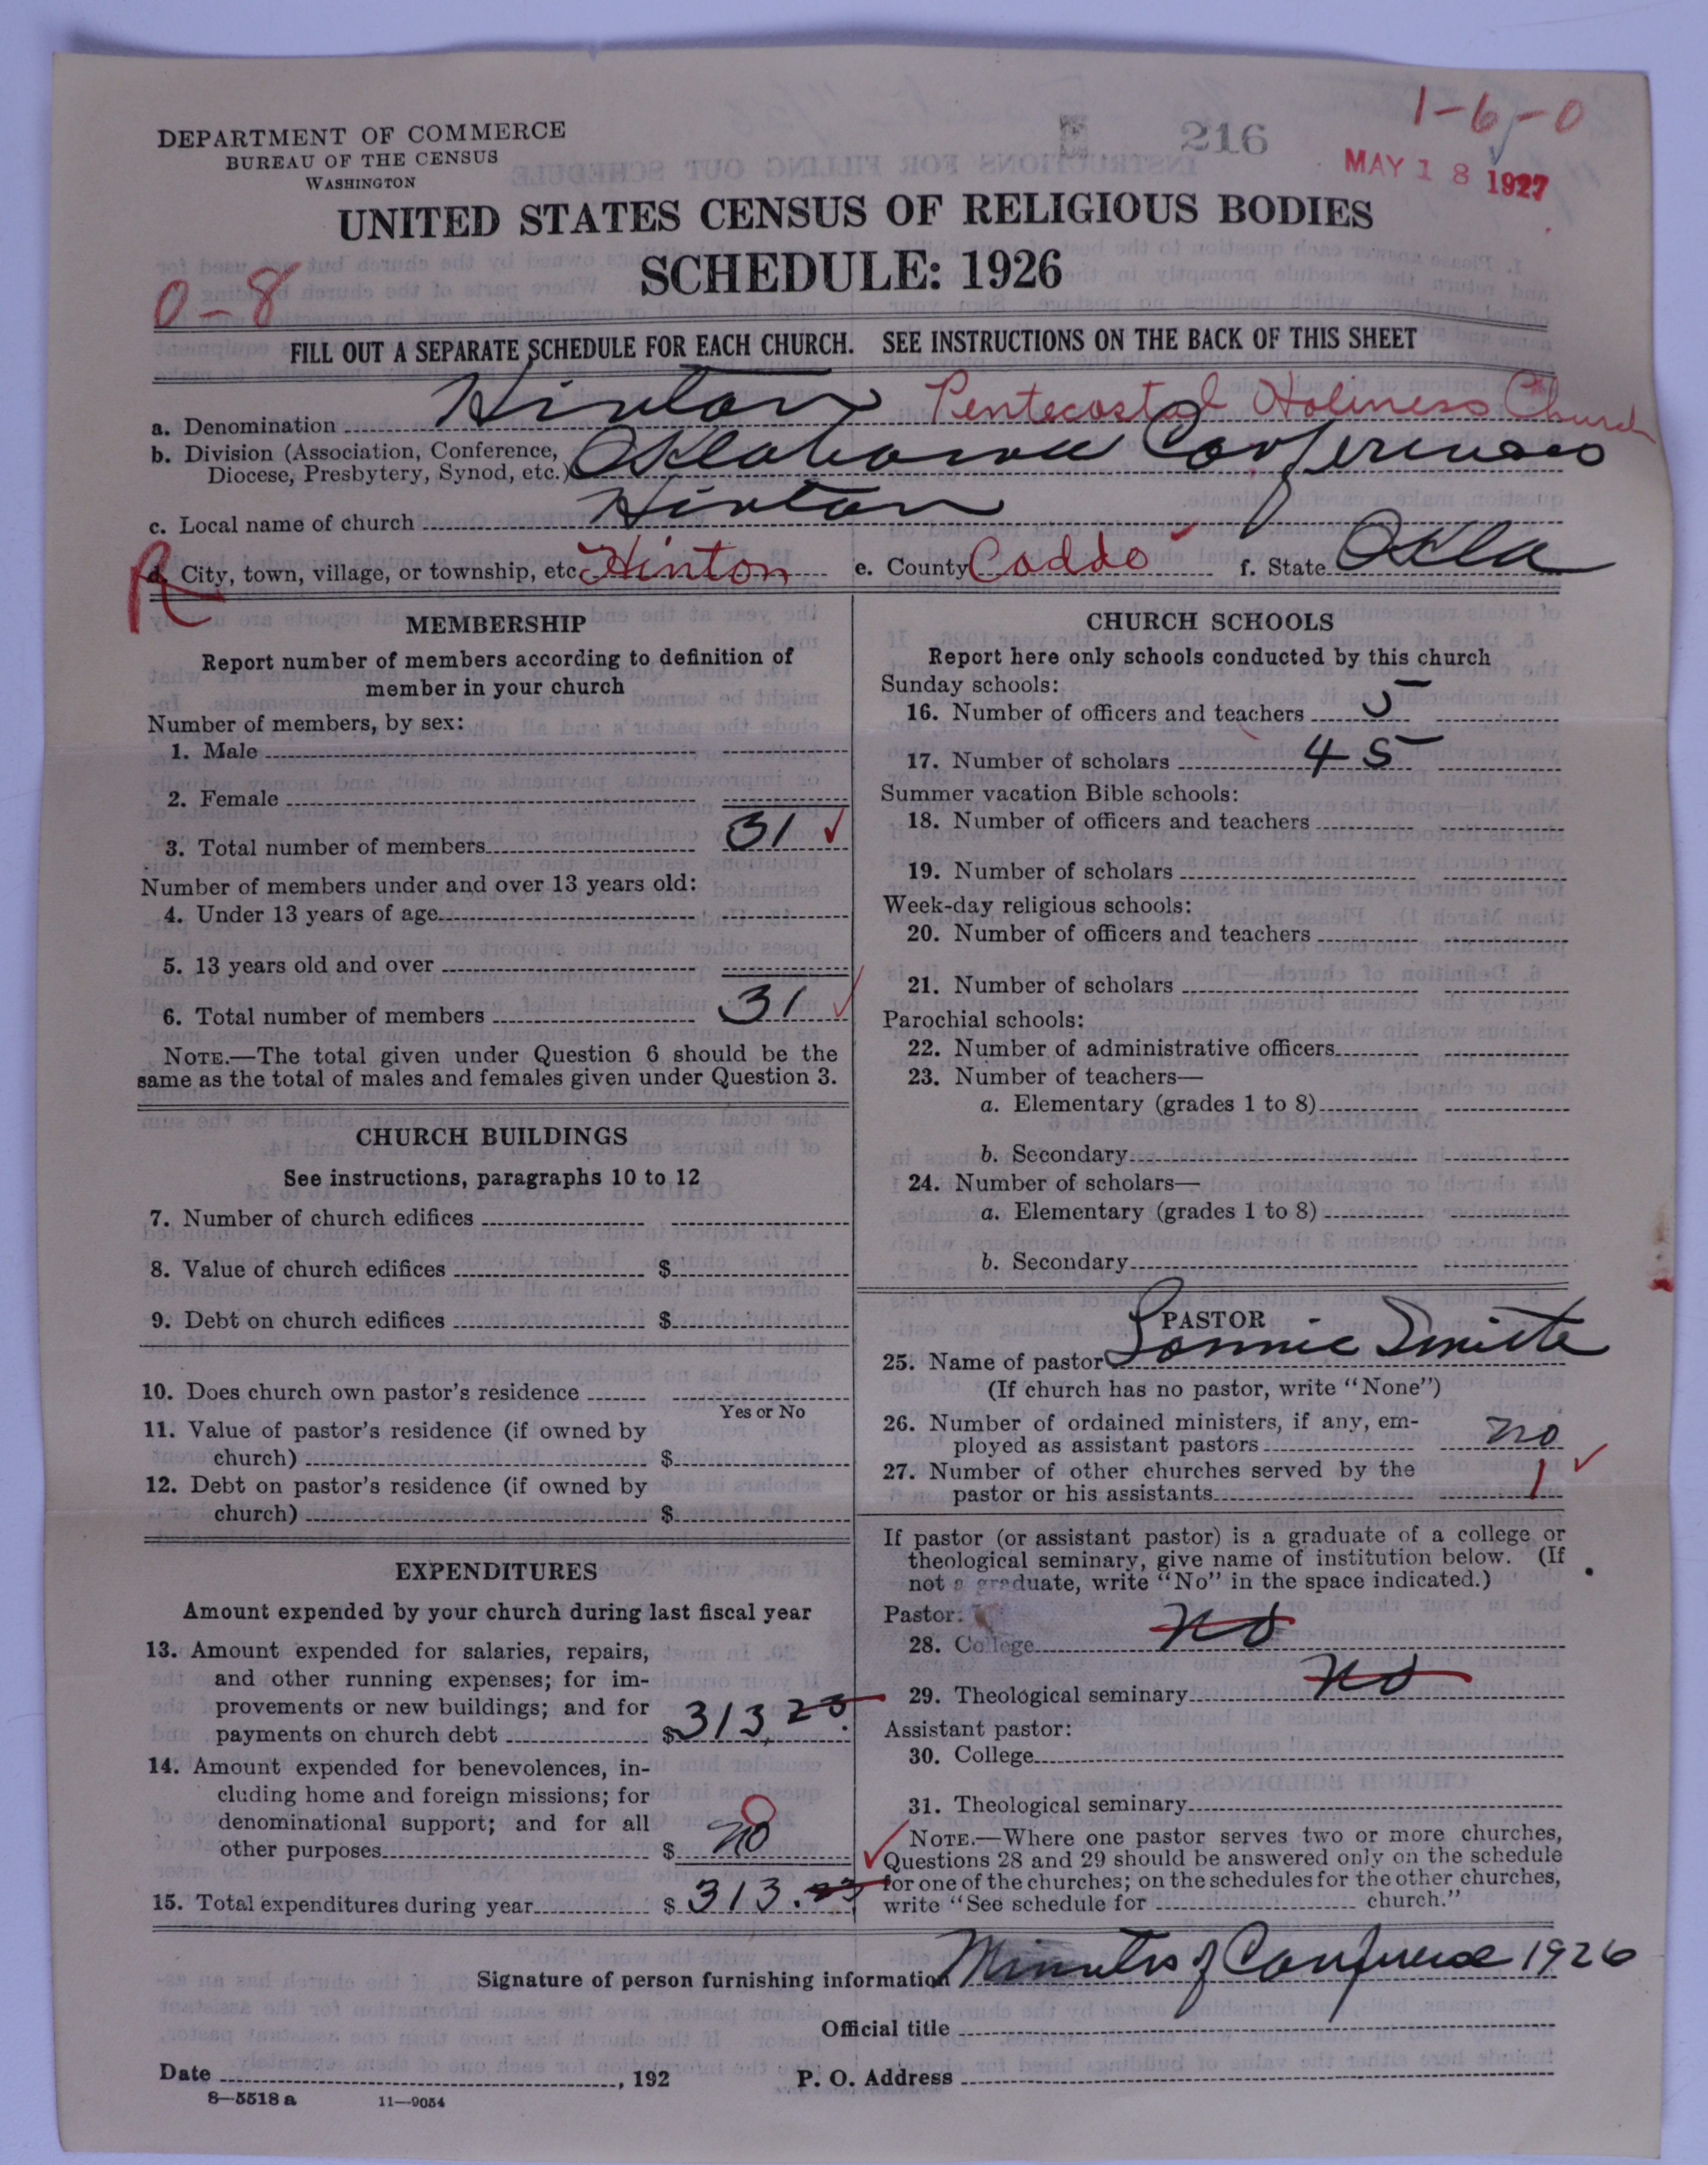 1-6-0
216
MAY 18 1927
DEPARTMENT OF COMMERCE
BUREAU OF THE CENSUS
WASHINGTON
UNITED STATES CENSUS OF RELIGIOUS BODIES
SCHEDULE: 1926
0-8
FILL OUT A SEPARATE SCHEDULE FOR EACH CHURCH. SEE INSTRUCTIONS ON THE BACK OF THIS SHEET
a. Denomination Hinton Pentecostal Holiness Church
b. Division (Association, Conference,
Diocese, Presbytery, Synod, etc.) Oklahoma Conference
c. Local name of church Hinton
R d. City, town, village, or township, etc. Hinton e. County Caddo f. State Okla
MEMBERSHIP
Report number of members according to definition of
member in your church
Number of members, by sex:
1. Male
2. Female
3. Total number of members 31
Number of members under and over 13 years old:
4. Under 13 years of age
5. 13 years old and over
6. Total number of members 31
NOTE.—The total given under Question 6 should be the
same as the total of males and females given under Question 3.
CHURCH BUILDINGS
See instructions, paragraphs 10 to 12
7. Number of church edifices
8. Value of church edifices $
9. Debt on church edifices $
10. Does church own pastor's residence
Yes or No
11. Value of pastor's residence (if owned by
church) $
12. Debt on pastor's residence (if owned by
church) $
EXPENDITURES
Amount expended by your church during last fiscal year
13. Amount expended for salaries, repairs,
and other running expenses; for im-
provements or new buildings; and for
payments on church debt $ 313.23
14. Amount expended for benevolences, in-
cluding home and foreign missions; for
denominational support; and for all
other purposes $ no 0
15. Total expenditures during year $ 313.23
CHURCH SCHOOLS
Report here only schools conducted by this church
Sunday schools:
16. Number of officers and teachers 5
17. Number of scholars 45
Summer vacation Bible schools:
18. Number of officers and teachers
19. Number of scholars
Week-day religious schools:
20. Number of officers and teachers
21. Number of scholars
Parochial schools:
22. Number of administrative officers
23. Number of teachers—
a. Elementary (grades 1 to 8)
b. Secondary
24. Number of scholars—
a. Elementary (grades 1 to 8)
b. Secondary
PASTOR
25. Name of pastor Lonnie Smith
(If church has no pastor, write "None")
26. Number of ordained ministers, if any, em-
ployed as assistant pastors no
27. Number of other churches served by the
pastor or his assistants 1
If pastor (or assistant pastor) is a graduate of a college or
theological seminary, give name of institution below. (If
not a graduate, write "No" in the space indicated.)
Pastor:
28. College no
29. Theological seminary no
Assistant pastor:
30. College
31. Theological seminary
NOTE.—Where one pastor serves two or more churches,
Questions 28 and 29 should be answered only on the schedule
for one of the churches; on the schedules for the other churches,
write "See schedule for church."
Signature of person furnishing information Minutes of Conference 1926
Official title
Date , 192 P. O. Address
8—5518 a 11—9054